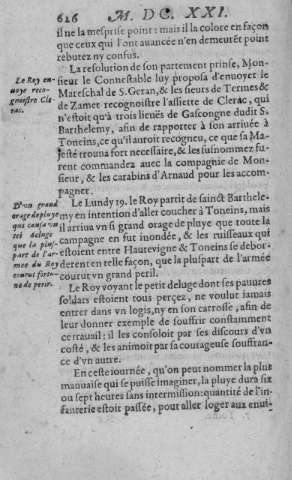 626 M. DC. XXI.
il ne la mesprise point: mais il la colore en façon
que ceux qui l'ont auancée n'en demeurēt point
rebutez ny confus.
La resolution de son partement prinse, Mon-
sieur le Connestable luy proposa d'enuoyer le
Mareschal de S. Geran, & les sieurs de Termes &
de Zamet recognoistre l'assiette de Clerac, qui
n'estoit qu'à trois lieuës de Gascongne dudit S.
Barthelemy, afin de rapporter à son arriuée à
Toneins, ce qu'il auroit recogneu, ce que sa Ma-
jesté trouua fort necessaire, & les susnommez fu-
rent commandez auec la compagnie de Mon-
sieur, & les carabins d'Arnaud pour les accom-
pagner.
Le Roy en-
uoye reco-
gnoistre Cle-
rac.
Le Lundy 19. le Roy partit de sainct Barthele-
my en intention d'aller coucher à Toneins, mais
il arriua vn si grand orage de pluye que toute la
campagne en fut inondée, & les ruisseaux qui
estoient entre Hauteuigne & Toneins se debor-
derent en telle façon, que la pluspart de l'armée
courut vn grand peril.
D'vn grand
orage de pluye
qui causa vn
tel deluge
que la plus-
part de l'ar-
mée du Roy
courut fortu-
ne de perir.
Le Roy voyant le petit deluge dont ses pauures
soldats estoient tous perçez, ne voulut jamais
entrer dans vn logis, ny en son carrosse, afin de
leur donner exemple de souffrir constamment
ce trauail; il les consoloit par ses discours d'vn
costé, & les animoit par sa courageuse souffran-
ce d'vn autre.
En ceste iournée, qu'on peut nommer la plus
mauuaise qui se puisse imaginer, la pluye dura six
ou sept heures sans intermission: quantité de l'in-
fanterie estoit passée, pour aller loger aux enui-